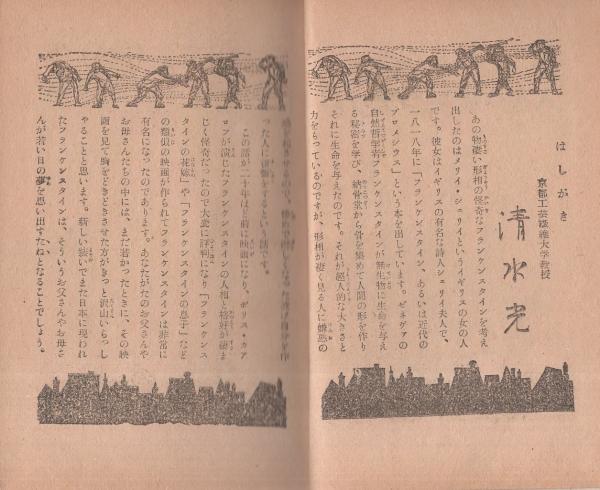 はしがき
京都工芸繊維大学教授
清水光
あの物凄い形相の怪奇なフランケンスタインを考え
出したのはメリイ・シェリイというイギリスの女の人
です。彼女はイギリスの有名な詩人シェリイ夫人で、
一八一八年に「フランケンスタイン、あるいは近代の
プロメシウス」という本を出しています。ゼネヴアの
自然哲学者フランケンスタインが無生物に生命を与え
る秘密を学び、納骨堂から骨を集めて人間の形を作り
それに生命を与えたのです。それが超人的な大きさと
力をもっているのですが、形相が凄く見る人に嫌悪の
を作
った人に復讐をするという話です。
この話が二十年ほど前に映画になり、ボリス・カア
ロフが演じたフランケンスタインの人相と格好が凄ま
じく怪奇だったので大変に評判になり「フランケンス
タインの花嫁」や「フランケンスタインの息子」など
の類似の映画が作られてフランケンスタインは非常に
有名になったのであります。あなたがたのお父さんや
お母さんたちの中には、まだ若かったときに、その映
画を見て胸をどきどきさせた方がきっと沢山いらっし
やることと思います。新しい装いでまた日本に現われ
たフランケンスタインは、そういうお父さんやお母さ
んが若い日の夢を思い出すたねとなることでしょう。